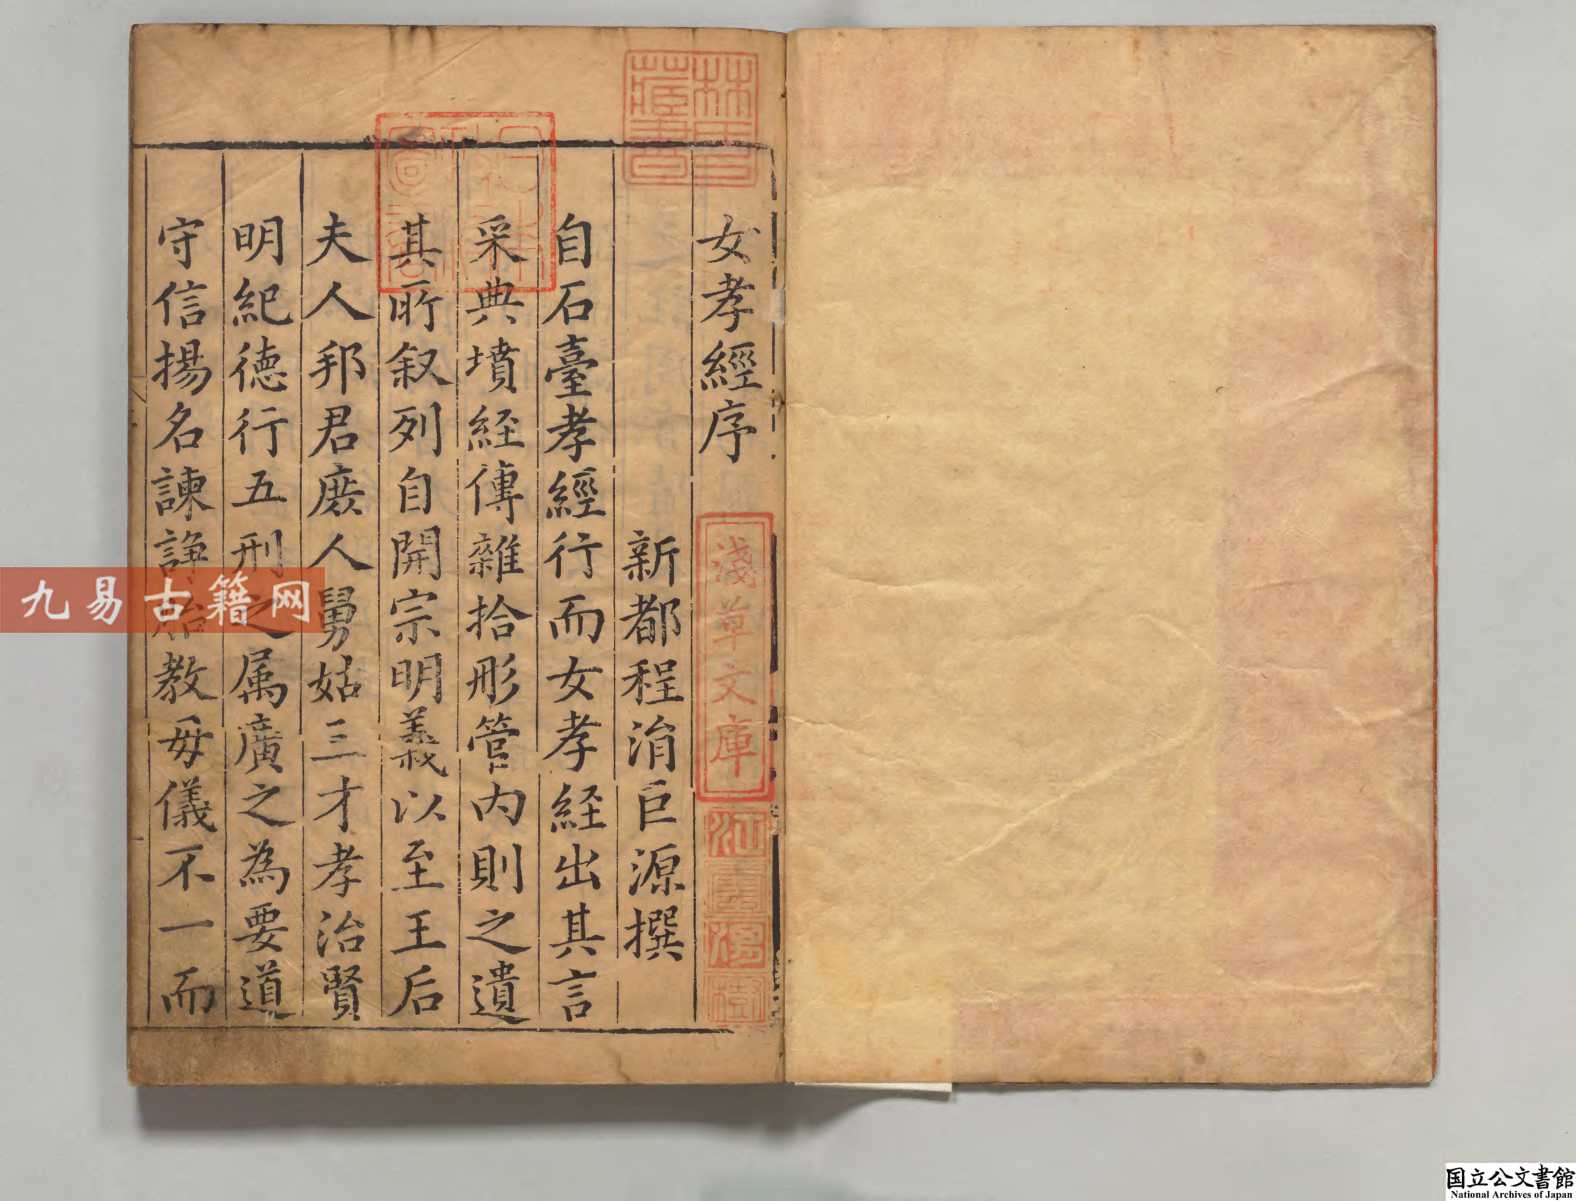 女孝經序
新都程涓巨源撰
自石臺孝經行而女孝経出其言
采典墳経傳雜拾形管内則之遺
其所叙列自開宗明義以至王后
夫人邦君庶人舅姑三才孝治賢
明紀德行五刑之属廣之為要道
守信揚名諫諍胎教毋儀不一而
林氏藏書
淺草文庫
江雲渭樹
九易古籍网
国立公文書館
National Archives of Japan